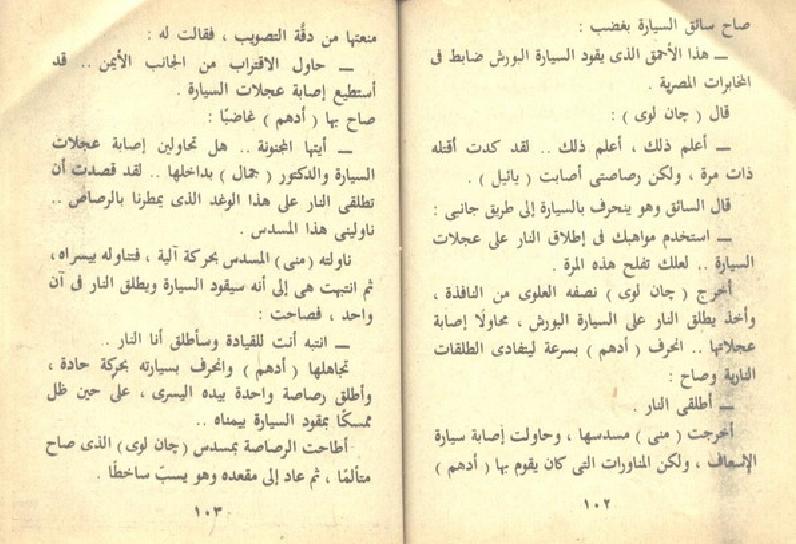 صاح سائق السيارة بغضب :
— هذا الأحمق الذى يقود السيارة البورش ضابط فى
المخابرات المصرية .
قال ( چان لوى ) :
— أعلم ذلك ، أعلم ذلك .. لقد كدت أقتله
ذات مرة ، ولكن رصاصتى أصابت ( ياتيل ) .
قال السائق وهو ينحرف بالسيارة إلى طريق جانبى :
— استخدم مواهبك فى إطلاق النار على عجلات
السيارة .. لعلك تفلح هذه المرة .
أخرج ( چان لوى ) نصفه العلوى من النافذة ،
وأخذ يطلق النار على السيارة البورش ، محاولًا إصابة
عجلاتها .. انحرف ( أدهم ) بسرعة ليتفادى الطلقات
النارية وصاح :
— أطلقى النار .
أخرجت ( منى ) مسدسها ، وحاولت إصابة سيارة
الإسعاف ، ولكن المناورات التى كان يقوم بها ( أدهم )
١٠٢
منعتها من دقَّة التصويب ، فقالت له :
— حاول الاقتراب من الجانب الأيمن .. قد
أستطيع إصابة عجلات السيارة .
صاح بها ( أدهم ) غاضبًا :
— أيتها المجنونة .. هل تحاولين إصابة عجلات
السيارة والدكتور ( جمال ) بداخلها .. لقد قصدت أن
تطلقى النار على هذا الوغد الذى يمطرنا بالرصاص ..
ناولينى هذا المسدس .
ناولته ( منى ) المسدس بحركة آلية ، فتناوله بيسراه ،
ثم انتبهت هى إلى أنه سيقود السيارة ويطلق النار فى آن
واحد ، فصاحت :
— انتبه أنت للقيادة وسأطلق أنا النار ..
تجاهلها ( أدهم ) وانحرف بسيارته بحركة حادة ،
وأطلق رصاصة واحدة بيده اليسرى ، على حين ظل
ممسكًا بمقود السيارة بيمناه ..
أطاحت الرصاصة بمسدس ( چان لوى ) الذى صاح
متألمًا ، ثم عاد إلى مقعده وهو يسبّ ساخطًا .
١٠٣